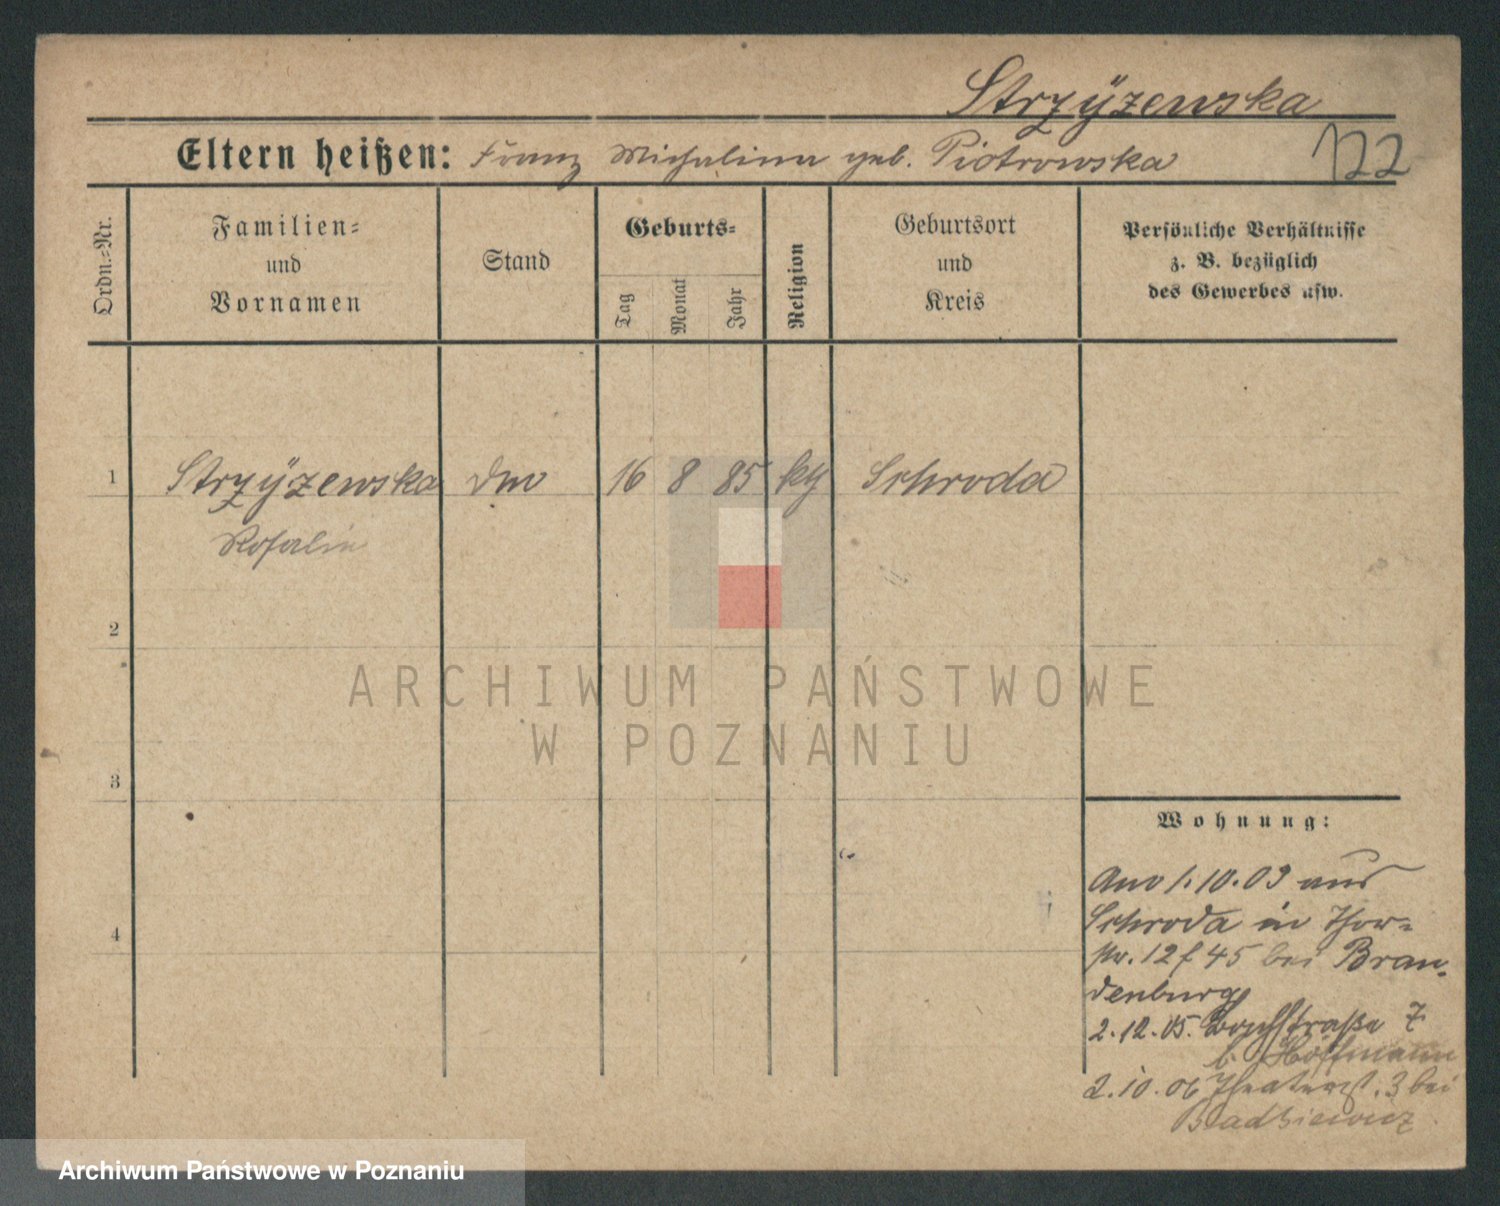 Strzÿzewska
122
Eltern heißen: Franz Michalina geb. Piotrowska
Ordn.-Nr.
Familien-
und
Vornamen
Stand
Geburts-
Tag
Monat
Jahr
Religion
Geburtsort
und
Kreis
Persönliche Verhältnisse
z. B. bezüglich
des Gewerbes usw.
1
Strzÿzewska
16
8
85
Schroda
Rosalie
2
ARCHIWUM PAŃSTWOWE
W POZNANIU
3
Wohnung:
1.10.03 aus
Schroda in Thor-
str. 12 f 45 bei Bran-
denburg
4
2.12.05. 7
b. Hoffmann
2.10.06 Theaterst. 3 bei
Archiwum Państwowe w Poznaniu